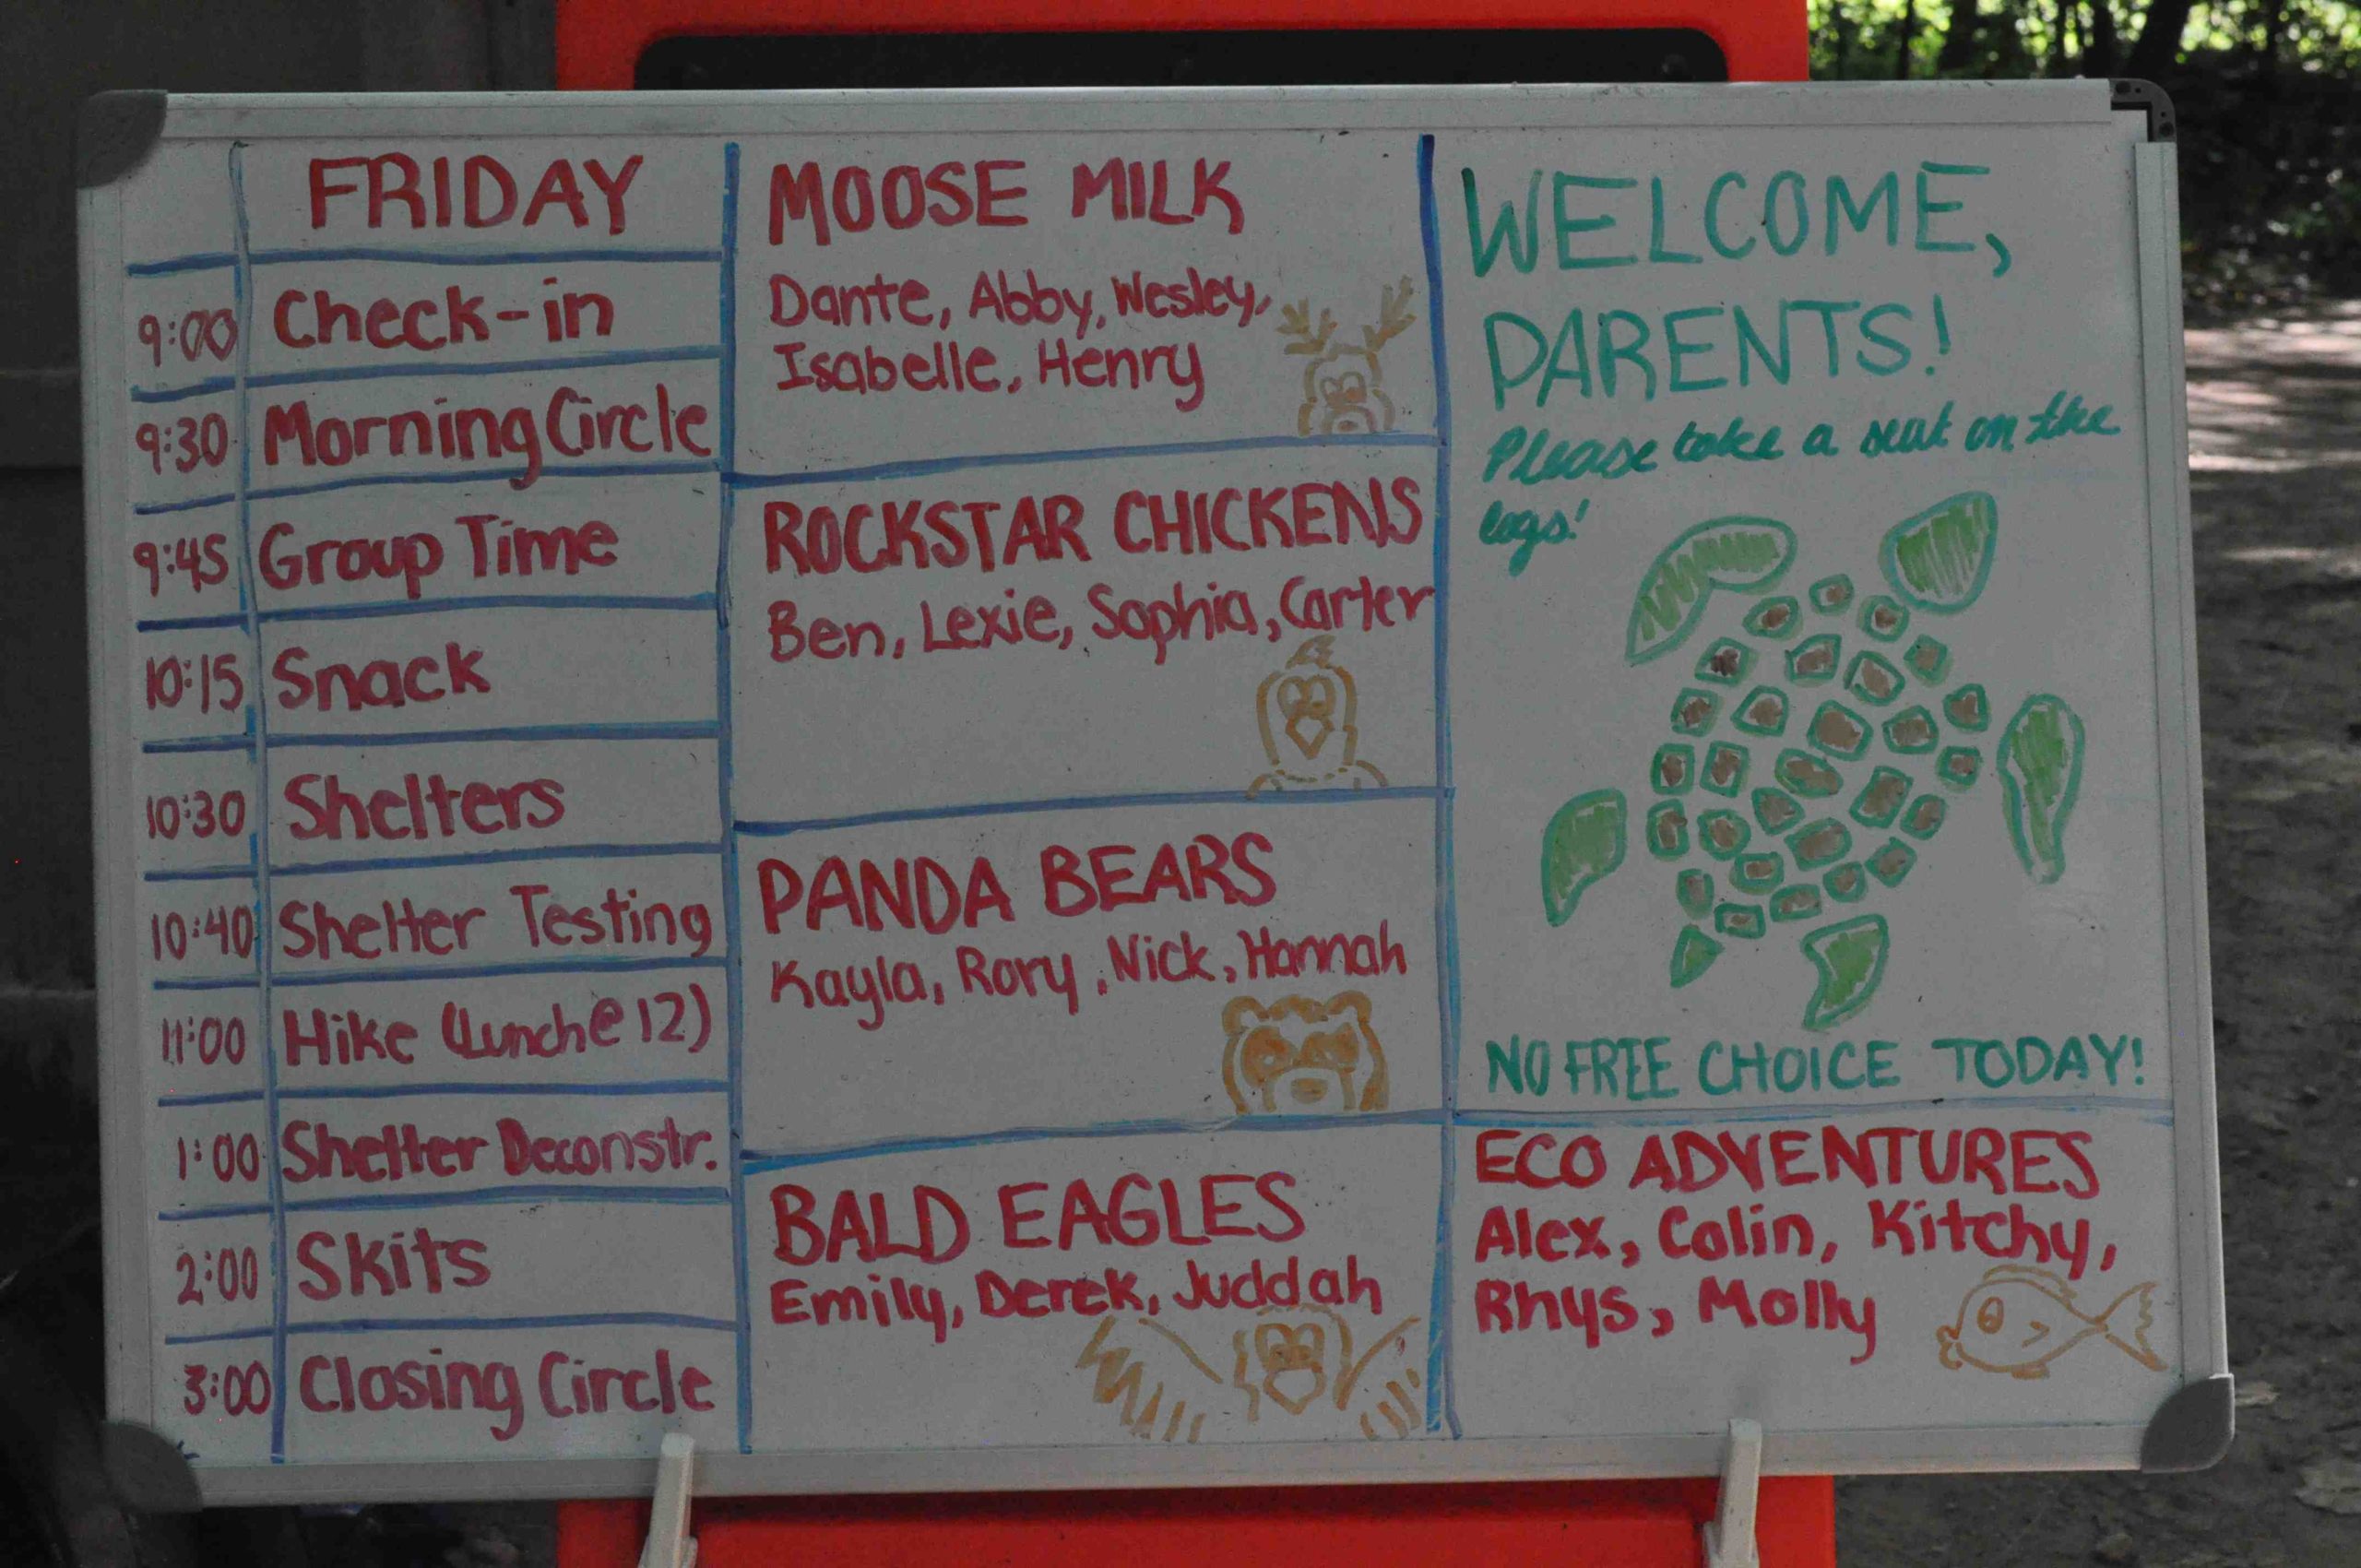 FRIDAY
9:00 Check-in
9:30 Morning Circle
9:45 Group Time
10:15 Snack
10:30 Shelters
10:40 Shelter Testing
11:00 Hike (Lunch@12)
1:00 Shelter Deconstr.
2:00 Skits
3:00 Closing Circle
MOOSE MILK
Dante, Abby, Wesley,
Isabelle, Henry
ROCKSTAR CHICKENS
Ben, Lexie, Sophia, Carter
PANDA BEARS
Kayla, Rory, Nick, Hannah
BALD EAGLES
Emily, Derek, Juddah
WELCOME,
PARENTS!
Please take a seat on the
logs!
NO FREE CHOICE TODAY!
ECO ADVENTURES
Alex, Colin, Kitchy,
Rhys, Molly